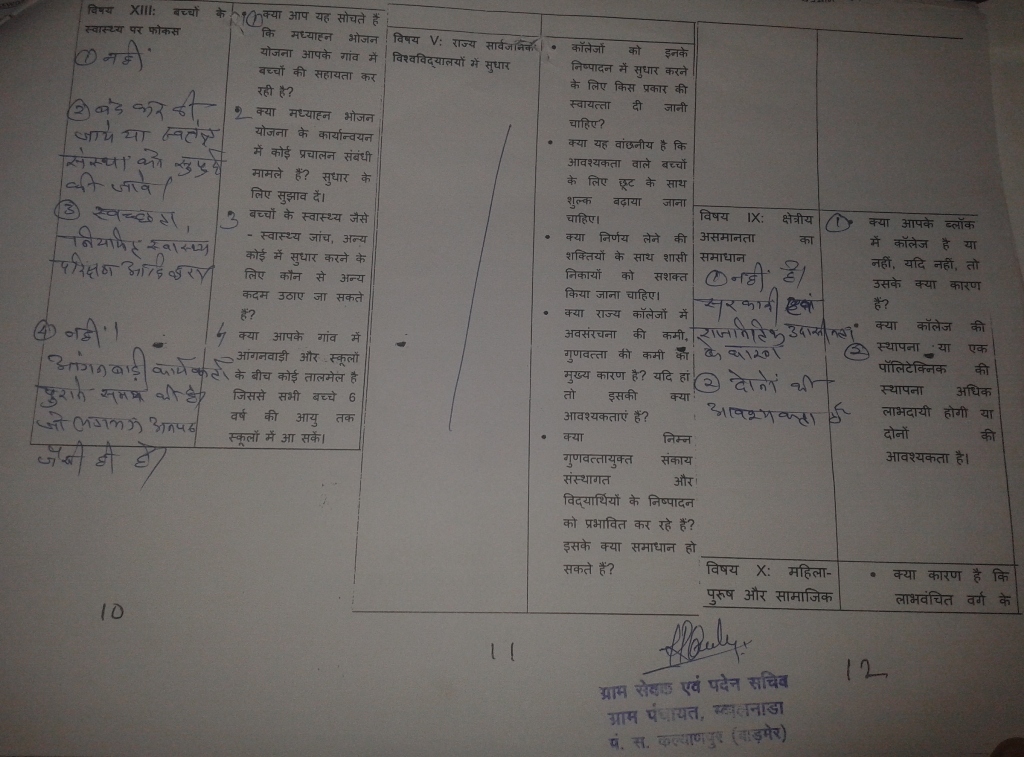 विषय XIII: बच्चों के
स्वास्थ्य पर फोकस
① नहीं
② बंद कर दी
जाये या स्वतंत्र
संस्था को सुपुर्द
की जावे।
③ स्वच्छता,
नियमित स्वास्थ्य
परिक्षण आदि
④ नहीं।
आंगनबाड़ी कार्यकर्ता
पुराने समय की है
जो लगभग अनपढ
जैसी ही है।
10
① क्या आप यह सोचते हैं
कि मध्याह्न भोजन
योजना आपके गांव में
बच्चों की सहायता कर
रही है?
2 क्या मध्याह्न भोजन
योजना के कार्यान्वयन
में कोई प्रचालन संबंधी
मामले हैं? सुधार के
लिए सुझाव दें।
3 बच्चों के स्वास्थ्य जैसे
- स्वास्थ्य जांच, अन्य
कोई में सुधार करने के
लिए कौन से अन्य
कदम उठाए जा सकते
हैं?
4 क्या आपके गांव में
आंगनवाड़ी और स्कूलों
के बीच कोई तालमेल है
जिससे सभी बच्चे 6
वर्ष की आयु तक
स्कूलों में आ सकें।
विषय V: राज्य सार्वजनिक
विश्वविद्यालयों में सुधार
• कॉलेजों को इनके
निष्पादन में सुधार करने
के लिए किस प्रकार की
स्वायत्ता दी जानी
चाहिए?
• क्या यह वांछनीय है कि
आवश्यकता वाले बच्चों
के लिए छूट के साथ
शुल्क बढ़ाया जाना
चाहिए।
• क्या निर्णय लेने की
शक्तियों के साथ शासी
निकायों को सशक्त
किया जाना चाहिए।
• क्या राज्य कॉलेजों में
अवसंरचना की कमी,
गुणवत्ता की कमी का
मुख्य कारण है? यदि हां
तो इसकी क्या
आवश्यकताएं हैं?
• क्या निम्न
गुणवत्तायुक्त संकाय
संस्थागत और
विद्यार्थियों के निष्पादन
को प्रभावित कर रहे हैं?
इसके क्या समाधान हो
सकते हैं?
11
विषय IX: क्षेत्रीय
असमानता का
समाधान
① नहीं है।
सरकारी एवं
राजनितिक उदासीनता
के कारण
② दोनों की
आवश्यकता है
① क्या आपके ब्लॉक
में कॉलेज है या
नहीं, यदि नहीं, तो
उसके क्या कारण
हैं?
② क्या कॉलेज की
स्थापना या एक
पॉलिटेक्निक की
स्थापना अधिक
लाभदायी होगी या
दोनों की
आवश्यकता है।
विषय X: महिला-
पुरुष और सामाजिक
• क्या कारण है कि
लाभवंचित वर्ग के
12
ग्राम सेवक एवं पदेन सचिव
ग्राम पंचायत,
पं. स. कल्याणपुर (बाड़मेर)